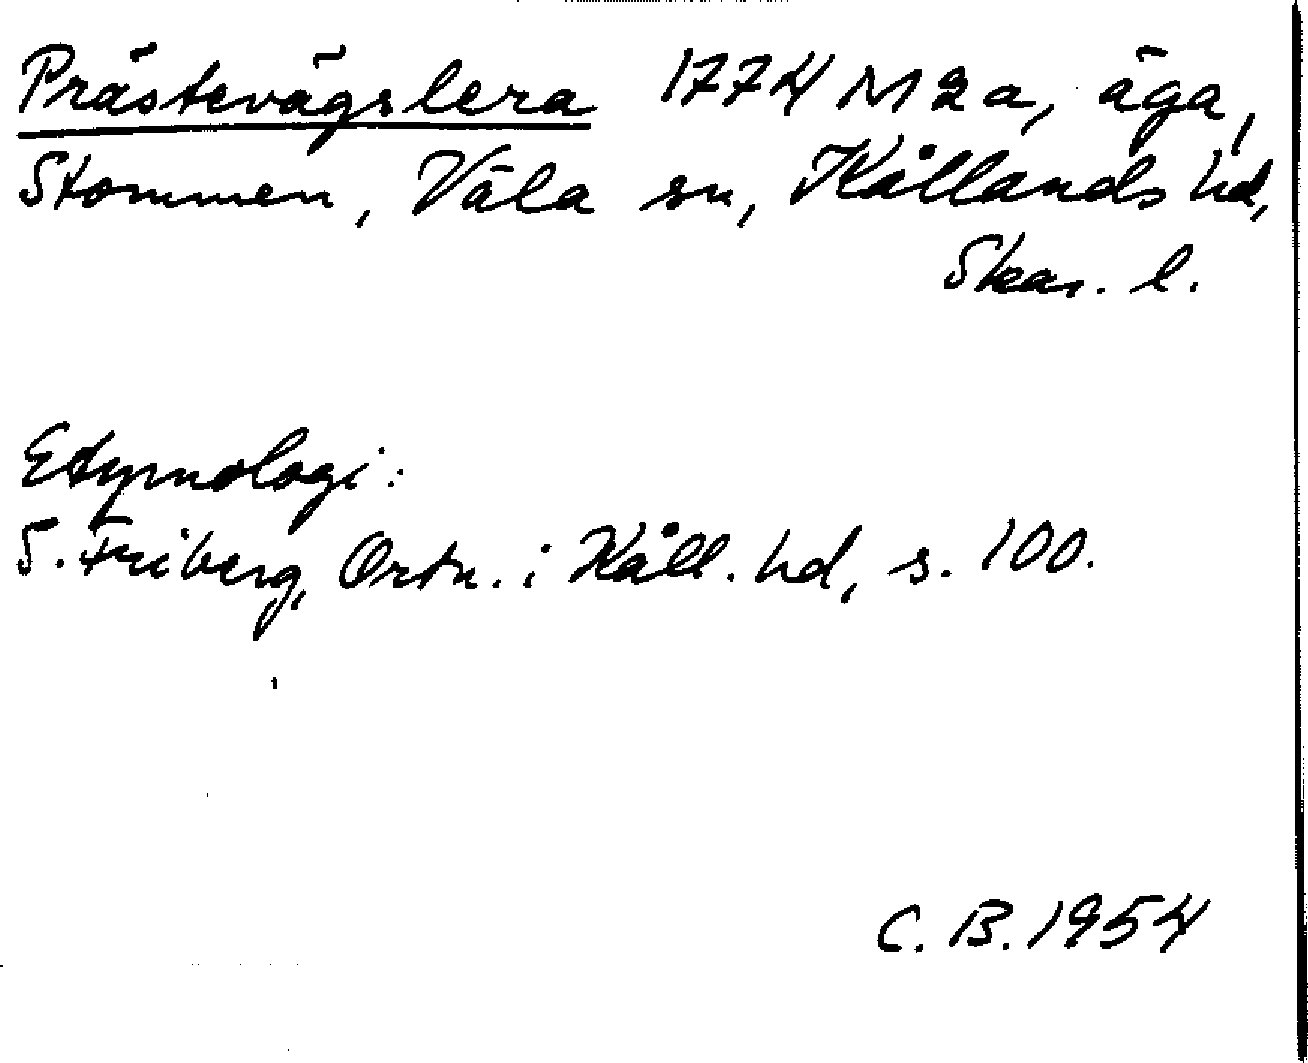 Prästevägslera 1774 M2a, äga,
Stommen, Väla sn, Kållands hd,
Skar. l.
Etymologi:
S. Friberg, Ortn. i Kåll. hd, s. 100.
C. B. 1954